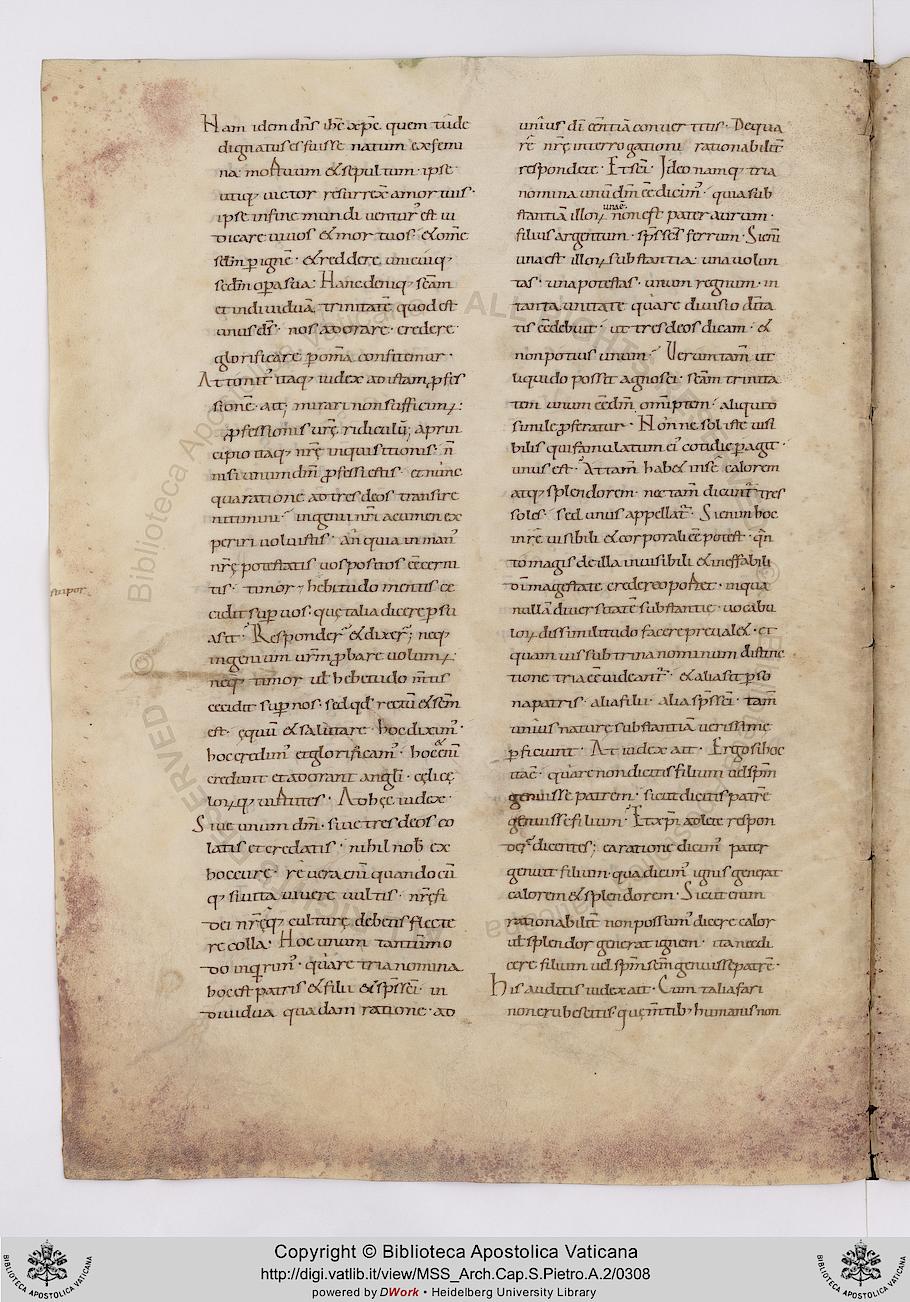 Nam idem dn̄s ih̄c xp̄c quem tu de
dignatus es fuisse natum ex femi
na mortuum & sepultum ipse
utiq; uictor resurrex amortuis ·
ipse in fine mundi uentur' est iu
dicare uiuos & mortuos · & om̄e
sclm p ignē · & reddere unicuiq;
scdm opa sua · Hanc deniq; sc̄am
et indiuiduā trinitatē quod est
unus ds̄ · nos adorare · credere ·
glorificare p om̄a confitemur ·
Attonit' itaq; iudex ad istam pfes
sionē · ait; mirari non sufficim;
pfessionis urē ridiculū; a prin
cipio itaq; nrē inquisitionis · n̄
nisi unum dm̄ pfessi estis · et nunc
qua ratione ad tres deos transire
nitimini · ingenii nr̄i acumen ex
periri uoluistis · an quia in man'
nr̄ę potestatis uos positos eē cerni
tis · timor & hebitudo mentis ce
cidit sup uos · quę talia dicere psu
asit · Responder' & dixer'; neq;
ingenium urm pbare uolum;
neq; timor ul hebitudo mētis
cecidit sup nos · sed qd' rectū & scm
est · equū & salutare · hoc dixim' ·
hoc credim' et glorificam' · hoc & cū
credunt et adorant angli · cęlicę
lorūq; uirtutes · Ad hęc iudex ·
Siue unum dm̄ · siue tres deos co
latis et credatis · nihil nob ex
hoc cure · re uera eni quando cū
q; si uitta uiuere uultis · nr̄ę fi
dei nr̄ęq; culturę debetis flecte
re colla · Hoc unum tantūmo
do inqrim' · quare tria nomina
hoc est patris & filii & sp̄s sc̄i · in
diuidua quadam ratione · ad
stupor
unius di ēentiā conuertitis · De qua
re nr̄ę interrogationi rationabilit'
respondete · Et sc̄i · Ideo namq; tria
nomina unū dm̄ eē dicim' · quia sub
stantia illor; una ē · non est pater aurum ·
filius argentum · sp̄s sc̄s ferrum · Sicut
una est illor; substantia · una uolun
tas · una potestas · unum regnum · in
tanta unitate quare diuisio dīta
tis eē debuit · ut tres deos dicam · &
non potius unum · Ueruntam̄ ut
liquido posset agnosci · sc̄am trinita
tem unum eē dm̄ om̄iptem · aliquid
simile pferatur · Nonne sol iste uisi
bilis qui famulatum ei' cotidie pagit ·
unus est · Attam̄ habet in se calorem
atq; splendorem · nec tam̄ dicunt' tres
soles · sed unus appellat' · Si enim hoc
in re uisibili & corporali eē potest · q̄n
to magis de illa inuisibili & ineffabili
di magestate credere oportet · in qua
nullā diuersitatē substantię uocabu
lor; dissimilitudo facere preualet · et
quamuis sub trina nominum distinc
tione tria eē uideant' · & alia sit pso
na patris · alia filii · alia sp̄s sc̄i · tam̄
unius naturę substantiā uerissime
pficiunt · At iudex ait · Ergo si hoc
ita ē · quare non dicitis filium uel spm̄
genuisse patrem · sicut dicitis patrē
genuisse filium · Et xp̄i adlete respon
der' dicentes; ea ratione dicim' pater
genuit filium · qua dicim' ignis generat
calorem & splendorem · Sicut enim
rationabilit' non possum' dicere calor
ul splendor generat ignem · ita nec di
cere filium uel spm̄ sc̄m genuisse patrē ·
His auditis iudex ait · Cum talia fari
non erubescitis · quę mtib; humanis non
Copyright © Biblioteca Apostolica Vaticana
http://digi.vatlib.it/view/MSS_Arch.Cap.S.Pietro.A.2/0308
powered by DWork • Heidelberg University Library